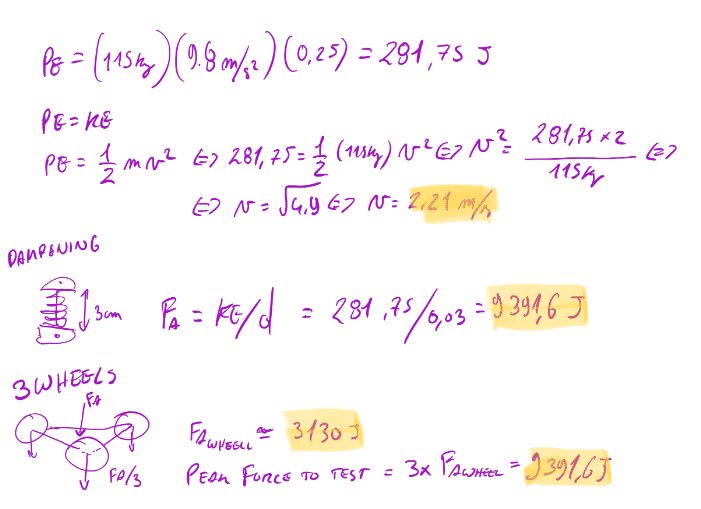 PE = (115kg)(9.8 m/s²)(0,25) = 281,75 J
PE = KE
PE = 1/2 m v² ⇔ 281,75 = 1/2 (115kg) v² ⇔ v² = 281,75 x 2 / 115kg ⇔
⇔ v = √4,9 ⇔ v = 2,21 m/s
DAMPENING
3cm
FA = KE/d = 281,75/0,03 = 9391,6 J
3 WHEELS
FA
FA WHEEL = 3130 J
FA/3
PEAK FORCE TO TEST = 3x FA WHEEL = 9391,6J